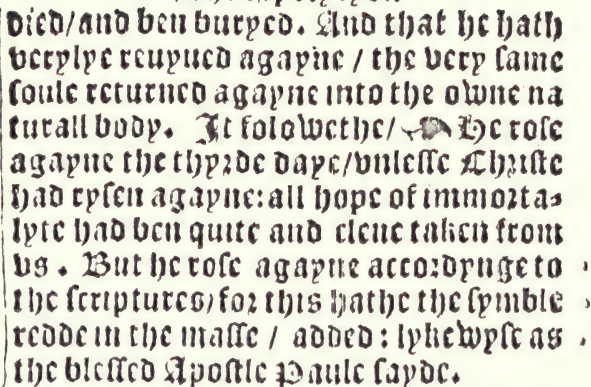 died/and ben buryed. And that he hath
verylye reuyued agayne / the very same
soule returned agayne into the owne na
turall body. It folowethe/ ☙ He rose
agayne the thyrde daye/vnlesse Christe
had rysen agayne: all hope of immorta-
lyte had ben quite and clene taken from
vs. But he rose agayne accordynge to
the scriptures/for this hathe the symble
redde in the masse / added: lykewyse as
the blessed Apostle Paule sayde.